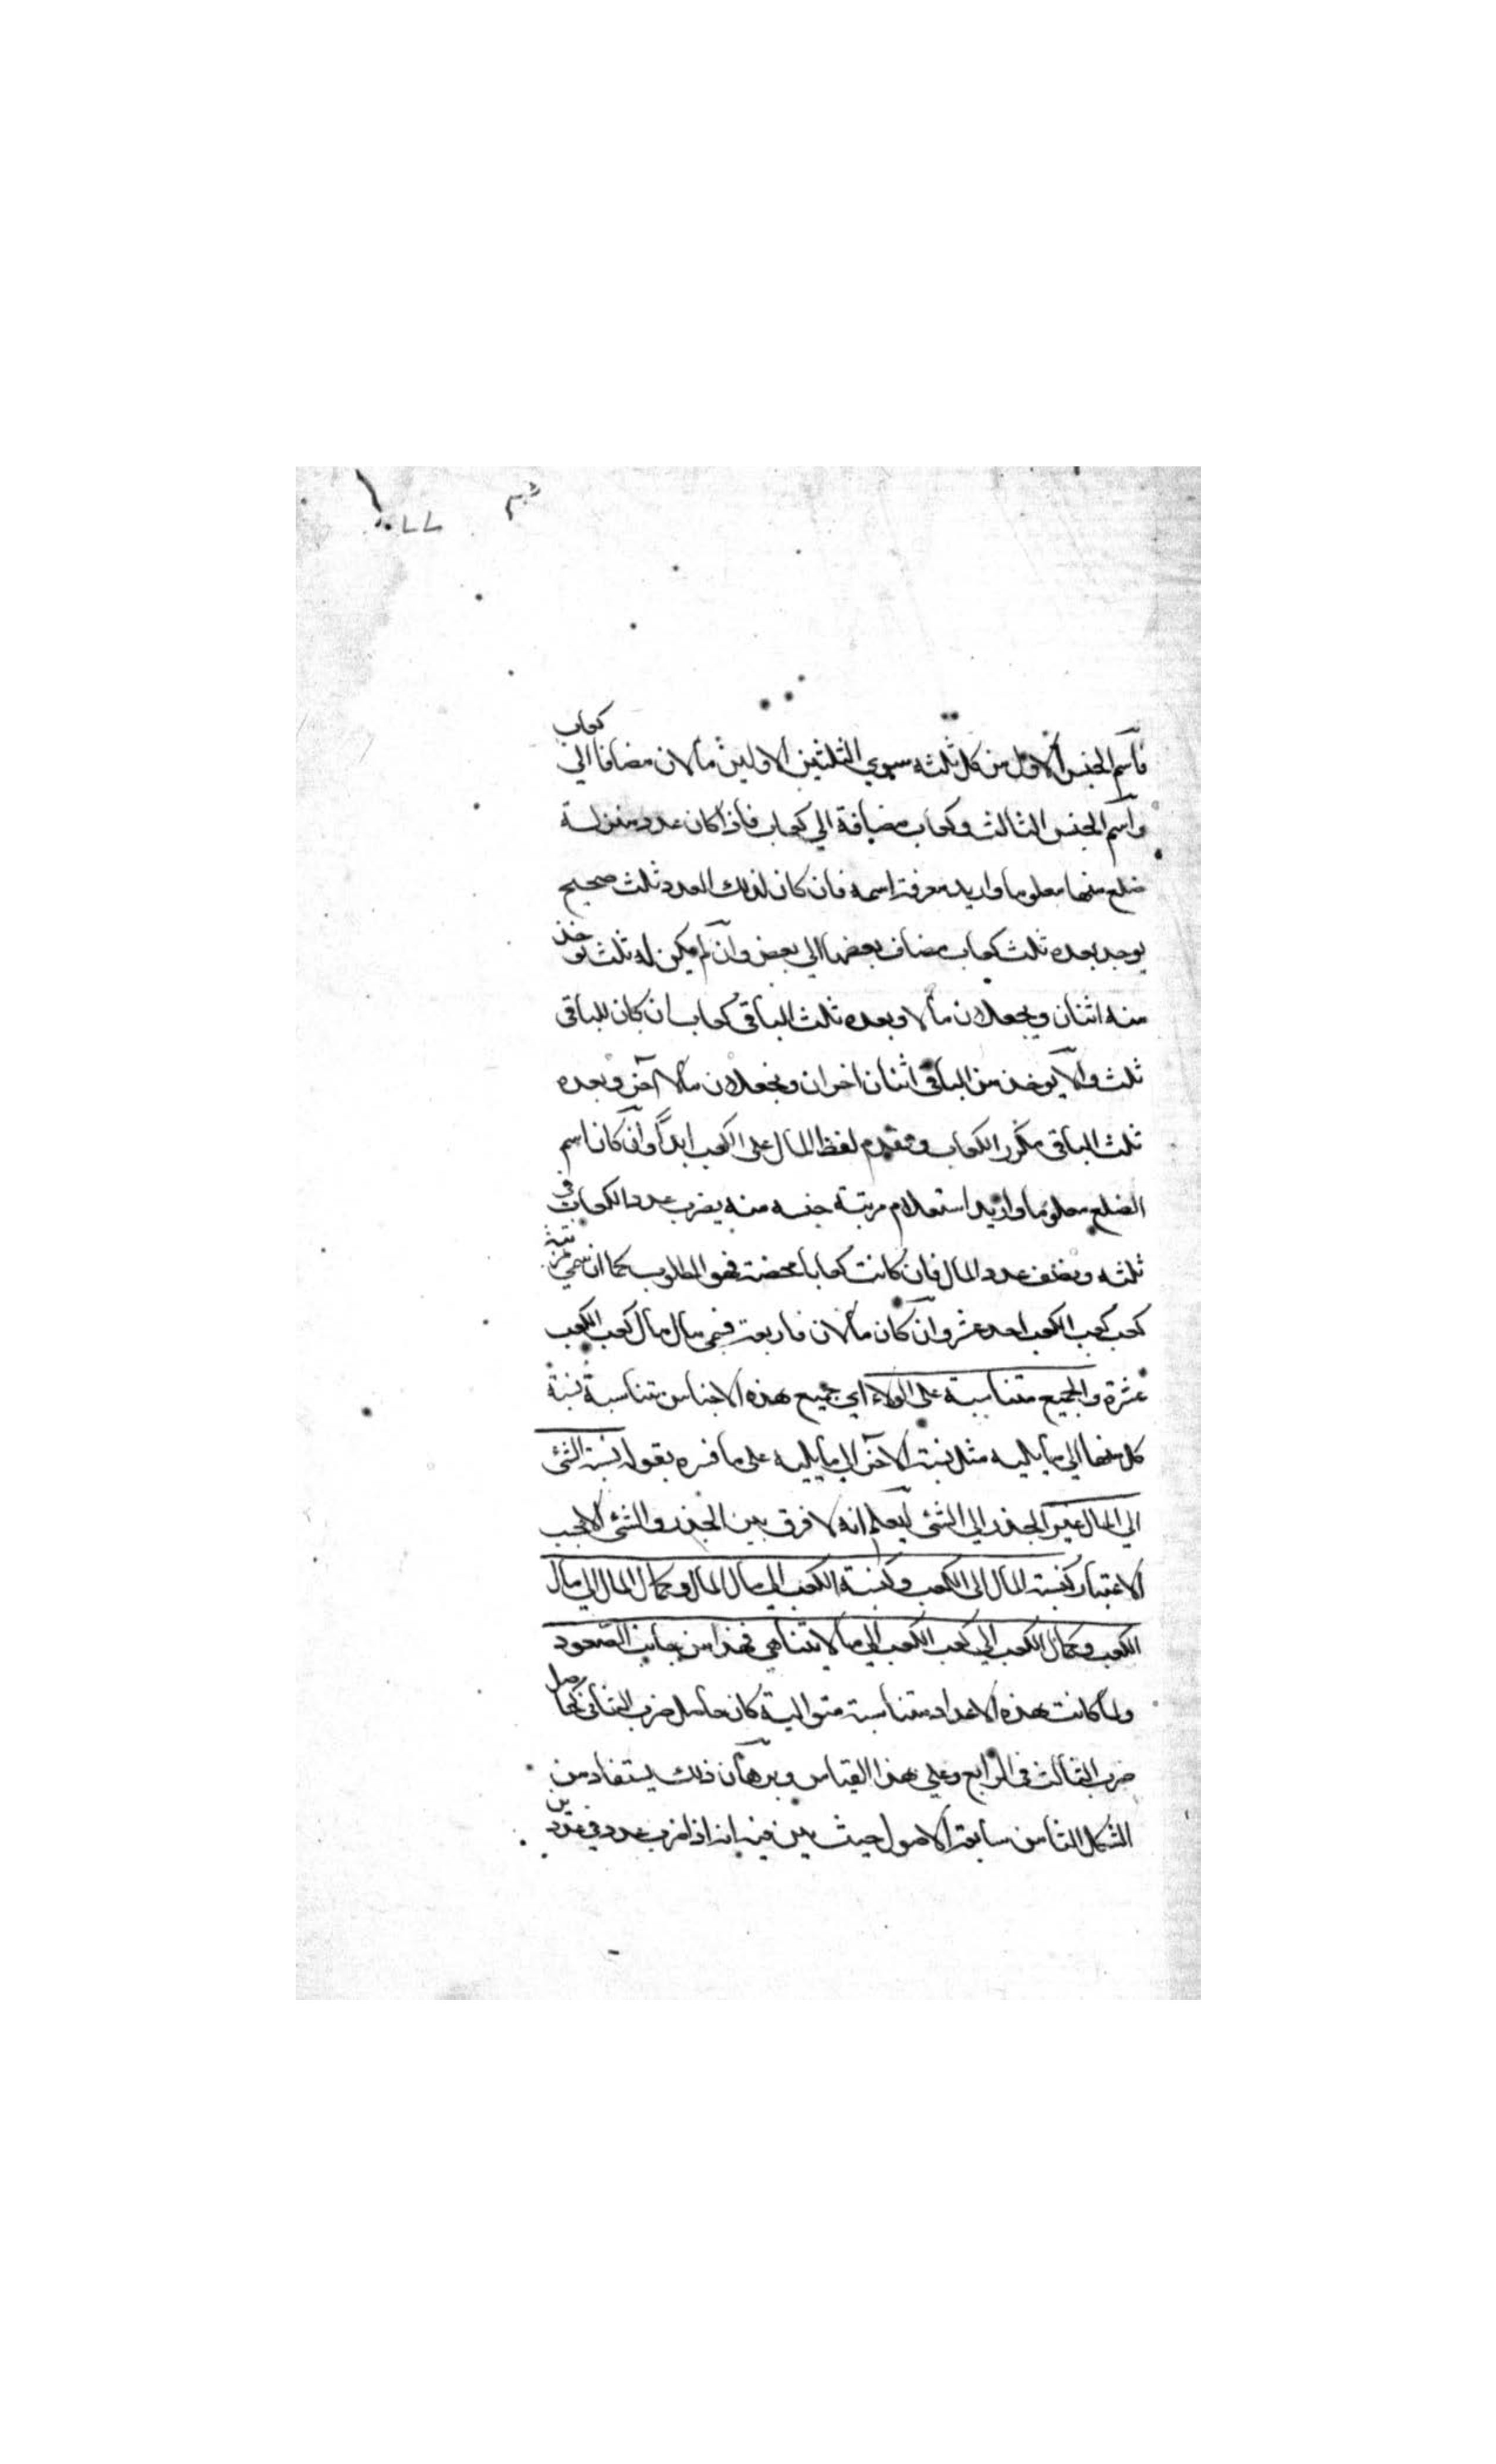 فاسم الجنس الاول من كل ثلثه سوي الثلثين الاولين مالان مضافا الي كعاب
واسم الجنس الثالث وكعاب مضافة الي كعاب فاذا كان عدد منزلة
ضلع منها معلوما واريد معرفة اسمه فان كان لذلك العدد ثلث صحيح
يوجد بعده ثلث كعاب مضاف بعضها الي بعض وان لم يكن له ثلث يوخذ
منه اثنان ويجعلان مالا وبعده ثلث الباقي كعاب ان كان للباقي
ثلث والا يوخذ من الباقي اثنان اخران ويجعلان مالا آخر وبعده
ثلث الباقي مكرر الكعاب وتقدم لفظ المال على الكعب ابدا وان كان اسم
الضلع معلوما واريد استعلام مرتبة جنسه منه يضرب عدد الكعاب في
ثلثه ويضعف عدد المال فان كانت كعابا محضة فهو المطلوب كما ان سمي مرتبة
كعب كعب الكعب احد عشر وان كان مالان فاربعة فسمي مال مال كعب الكعب
عشرة والجميع متناسبة على الولاء اي جميع هذه الاجناس متناسبة نسبة
كل منها الي ما يليه مثل نسبة الآخر الي ما يليه على ما فسره بقوله نسبة الشئ
الي المال غير الجذر الي الشئ ليعلم انه لا فرق بين الجذر والشئ الا بحسب
الاعتبار كنسبة المال الي الكعب وكنسبة الكعب الي مال المال وكمال المال الي مال
الكعب وكمال الكعب الي كعب الكعب الي ما لا يتناهي فهذا من جانب الصعود
ولما كانت هذه الاعداد متناسبة متوالية كان حاصل ضرب الثاني كحاصل
ضرب الثالث في الرابع وعلي هذا القياس وبرهان ذلك يستفاد من
الشكل الثامن سابعة الاصول حيث بين فيه انه اذا ضرب عدد في عددين